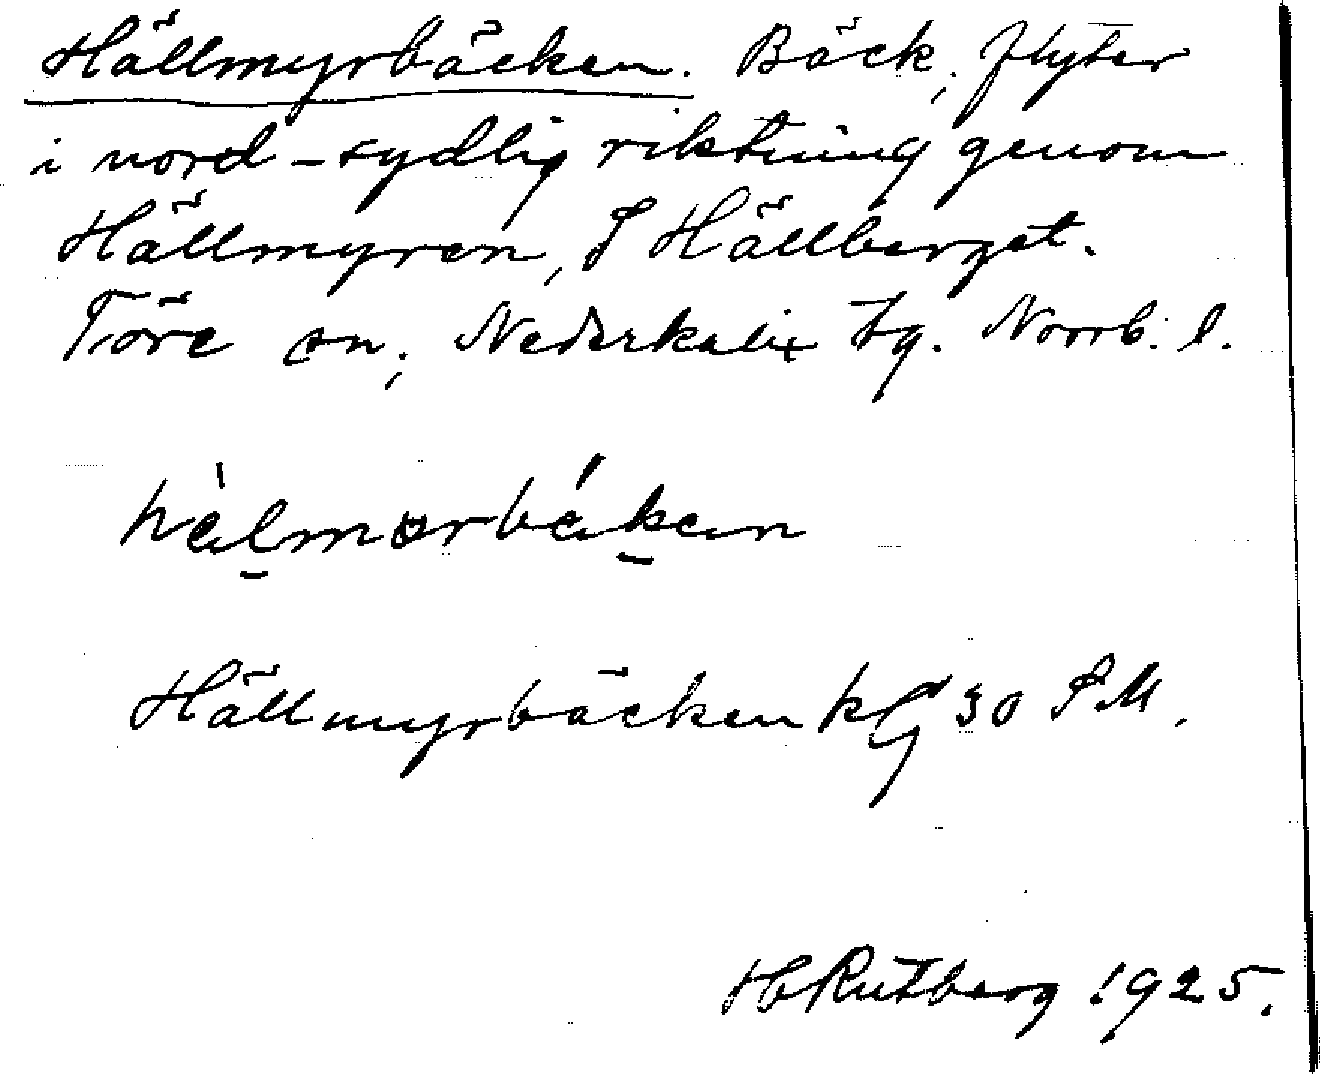 Hällmyrbäcken. Bäck, flyter
i nord-sydlig riktning genom
Hällmyren, S Hällberget.
Töre sn, Nederkalix tg. Norrb. l.
Hällmyrbäcken kfg 30 S M.
H Rutberg 1925.